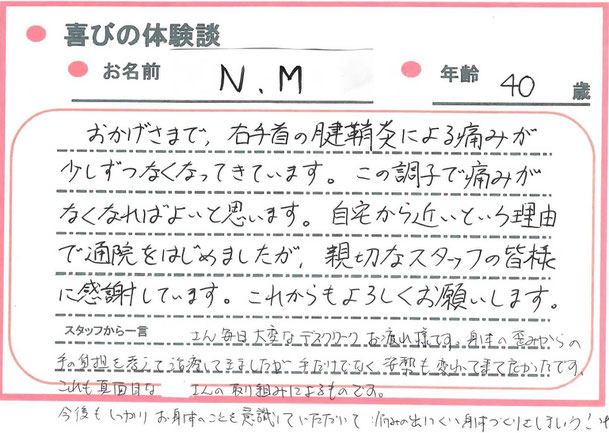 喜びの体験談
お名前 N.M 年齢 40 歳
おかげさまで、右手首の腱鞘炎による痛みが
少しずつなくなってきています。この調子で痛みが
なくなればよいと思います。自宅から近いという理由
で通院をはじめましたが、親切なスタッフの皆様
に感謝しています。これからもよろしくお願いします。
スタッフから一言 さん毎日大変なデスクワークお疲れ様です。身体の歪みからの
手の負担を考えて治療してきましたが手だけでなく姿勢も変わって来てたかったです。
これも真面目な さんの取り組みによるものです。
今後もしっかりお身体のことを意識していただいて 痛みの出にくい身体づくりをしましょう!